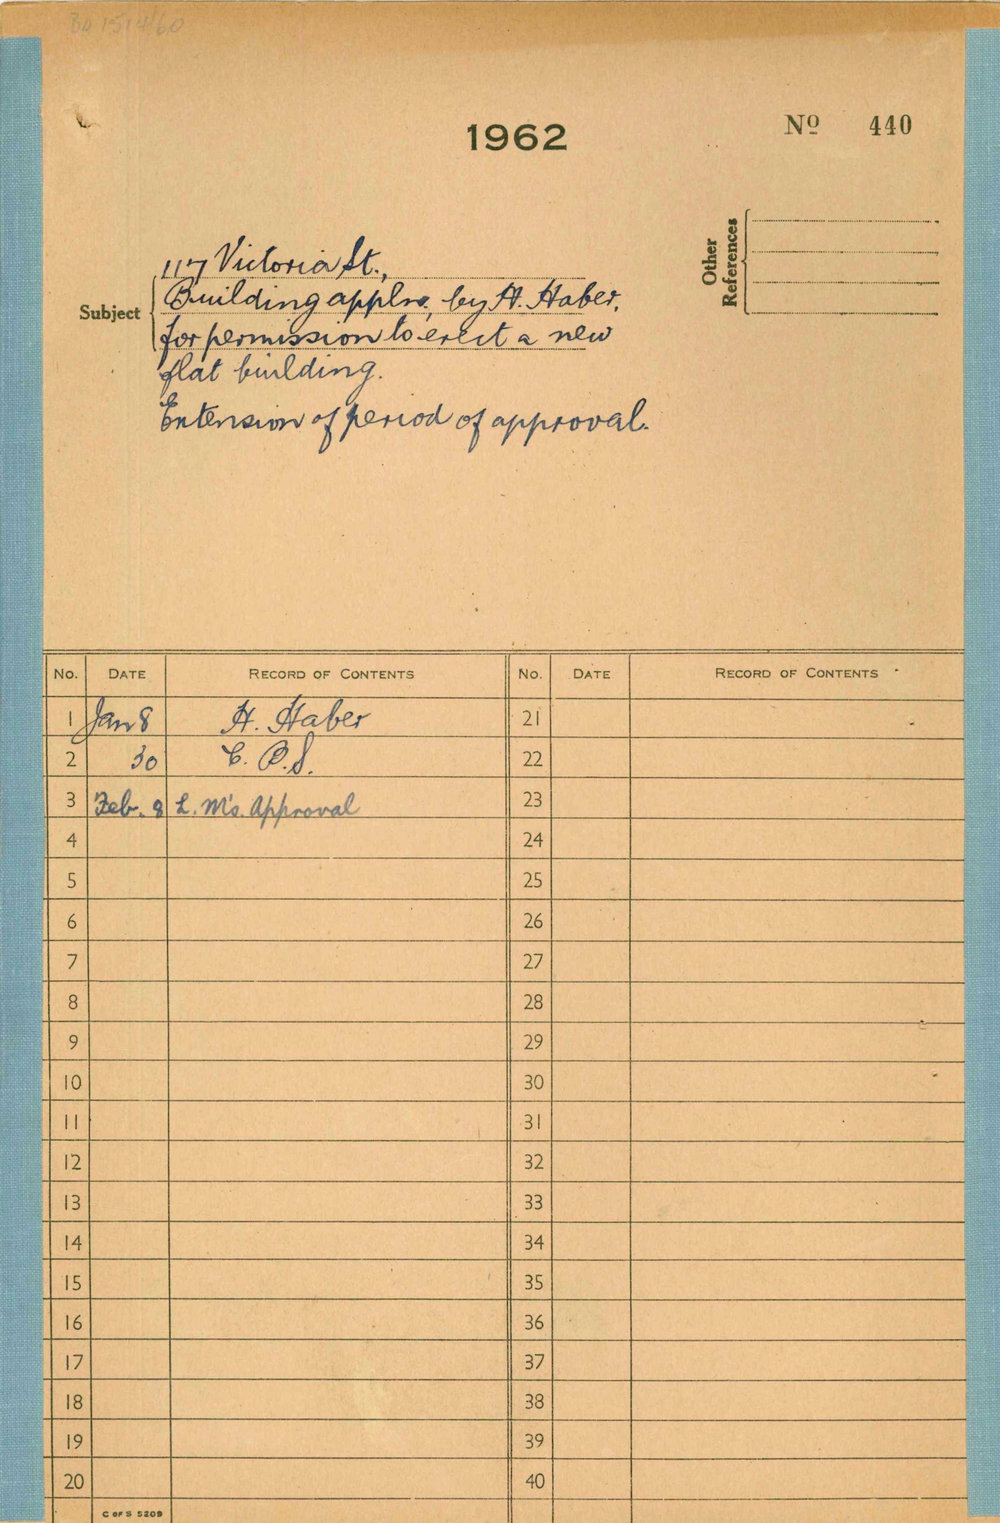 BA 1514/60
1962
Nº 440
Other References
Subject
117 Victoria St.,
Building appln, by H. Haber,
for permission to erect a new
flat building.
Extension of period of approval.
No. DATE RECORD OF CONTENTS No. DATE RECORD OF CONTENTS
1 Jan 8 H. Haber 21
2 30 C. B.S. 22
3 Feb. 8 L. M's. Approval 23
4 24
5 25
6 26
7 27
8 28
9 29
10 30
11 31
12 32
13 33
14 34
15 35
16 36
17 37
18 38
19 39
20 40
C OF S 5209